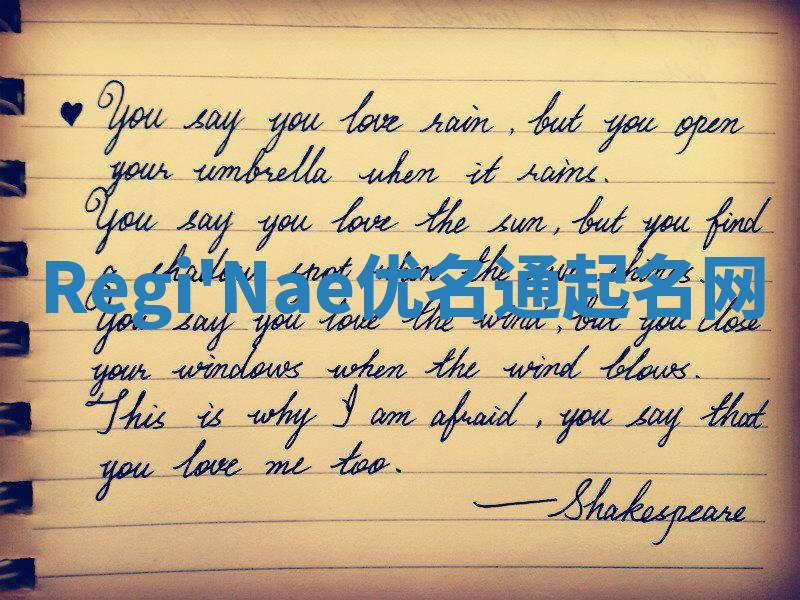 ♥ You say you love rain, but you open
your umbrella when it rains.
You say you love the sun, but you find
a shadow spot when the sun shines.
Regi'Nae优名通起名网
You say you love the wind, but you close
your windows when the wind blows.
This is why I am afraid, you say that
you love me too.
— Shakespeare